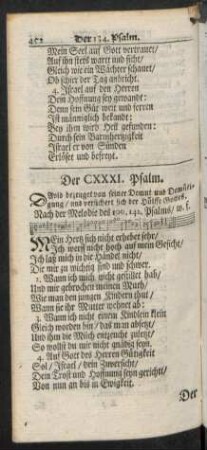 452 Der 134. Psalm.
Mein Seel auf Gott vertrauet/
Auf ihn stets wartet und sicht/
Gleich wie ein Wächter schauet/
Ob schier der Tag anbricht.
4. Israel auf den Herren
Dein Hoffnung sey gewandt:
Denn sein Güt weit und ferren
Ist männiglich bekandt:
Bey ihm wird Heil gefunden:
Durch sein Barmhertzigkeit
Israel er von Sünden
Erlöset und befreyt.
Der CXXXI. Psalm.
David bezeuget von seiner Demut und
gung/ und versichert sich der Hülffe Gottes.
Nach der Melodie des 100. 142. Psalms/
MEin Hertz sich nicht erhebet sehr/
Ich
Ich laß mich in die Händel nicht/
Die mir zu mächtig sind und schwer.
2. Wann ich mich nicht gestillet hab/
Und mir gebrochen meinen Muth/
Wie man den jungen Kindern thut/
Wann sie ihr Mutter wehnet ab:
3. Wann ich nicht einem Kindlein klein
Gleich worden bin/ das man absetzt/
Und ihm die Milch entzeucht zuletzt/
So wollst du mir nicht gnädig seyn.
4. Auf Gott des Herren Gütigkeit
Sol/ Israel/ dein Zuversicht/
Dein Trost und Hoffnung seyn gericht/
Von nun an bis in Ewigkeit.
Der